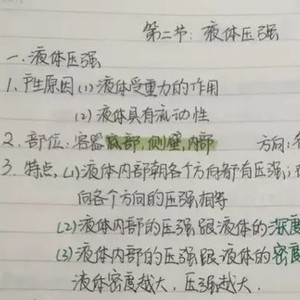 第二节:液体压强
一.液体压强
1.产生原因(1)液体受重力的作用
(2)液体具有流动性
2.部位:容器底部,侧壁,内部 方向:
3.特点,(1)液体内部朝各个方向都有压强;
向各个方向的压强相等
(2)液体内部的压强跟液体的深度
(3)液体内部的压强跟液体的密度
液体密度越大,压强越大.